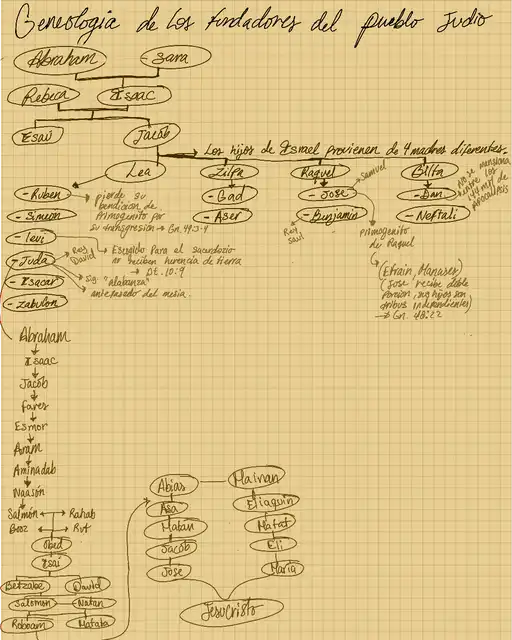 Geneologia de los fundadores del pueblo Judio
Abraham - Sara
Rebeca Isaac
Esaú Jacob
Los hijos de Israel provienen de 4 madres diferentes.
Lea Zilpa Raquel Bilha
- Ruben
pierde su
bendicion de
Primogenito por
su transgresion → Gn. 49:3-4
- Simeon
- levi
Escogido para el sacerdocio
no reciben herencia de tierra
→ Dt. 10:9
- Juda
Rey David
sig. "alabanza"
antepasado del mesia.
- Isacar
- Zabulon
- Gad
- Aser
- Jose
Samuel
- Benjamin
Rey
Saul
primogenito
de Raquel
(Efrain, Manases)
(Jose recibe doble
Porcion, sus hijos son
tribus independientes)
→ Gn. 48:22
- Dan
No se menciona
entre los
144 mil de
apocalipsis
- Neftali
Abraham
Isaac
Jacob
fares
Esmor
Aram
Aminadab
Naasón
Salmón Rahab
Booz Rut
Obed
Isai
Betzabe David
Salomon Natan
Roboam Matata
Abias Mainan
Asa Eliaquin
Matan Matat
Jacob Eli
Jose Maria
Jesucristo